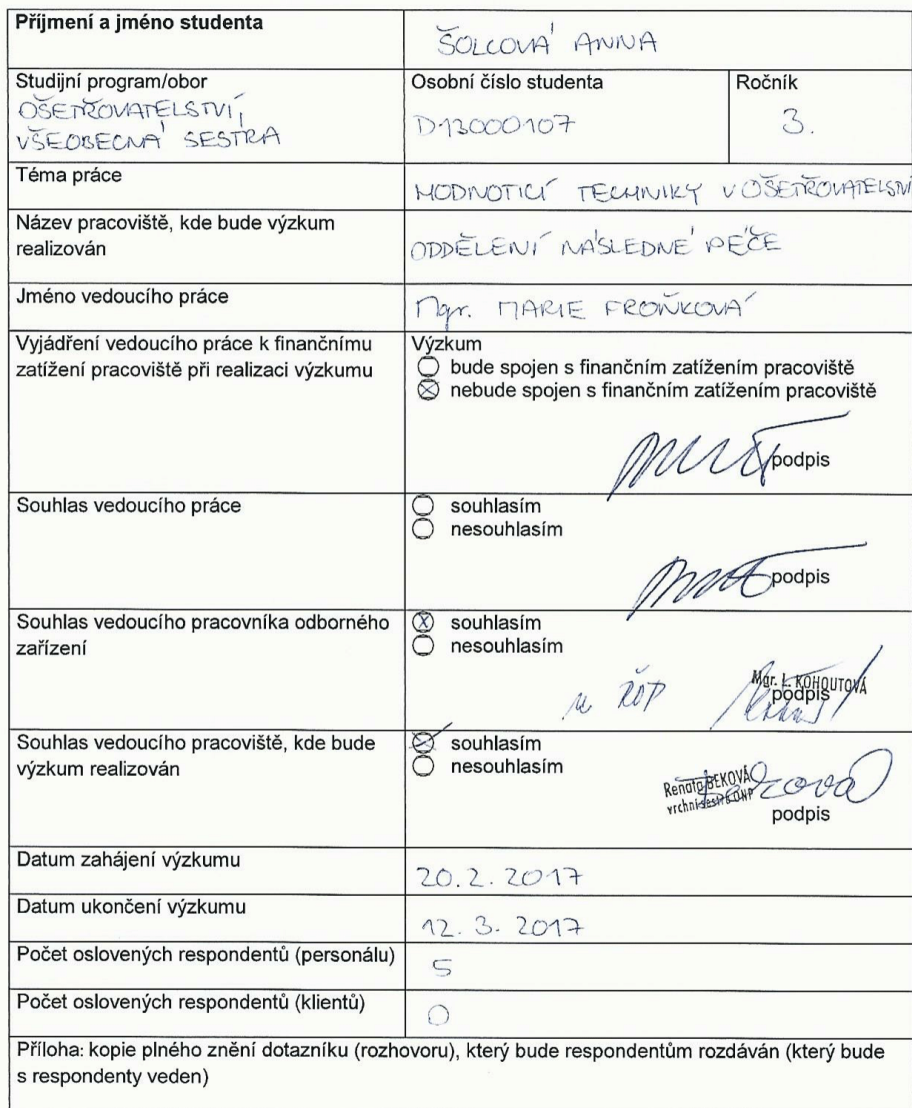 Příjmení a jméno studenta
ŠOLCOVÁ ANNA
Studijní program/obor
OŠETŘOVATELSTVÍ,
VŠEOBECNÁ SESTRA
Osobní číslo studenta
D13000107
Ročník
3.
Téma práce
HODNOTICÍ TECHNIKY V OŠETŘOVATELSTVÍ
Název pracoviště, kde bude výzkum
realizován
ODDĚLENÍ NÁSLEDNÉ PÉČE
Jméno vedoucího práce
Mgr. MARIE FROŇKOVÁ
Vyjádření vedoucího práce k finančnímu
zatížení pracoviště při realizaci výzkumu
Výzkum
bude spojen s finančním zatížením pracoviště
nebude spojen s finančním zatížením pracoviště
podpis
Souhlas vedoucího práce
souhlasím
nesouhlasím
podpis
Souhlas vedoucího pracovníka odborného
zařízení
souhlasím
nesouhlasím
Mgr. L. KOHOUTOVÁ
podpis
Souhlas vedoucího pracoviště, kde bude
výzkum realizován
souhlasím
nesouhlasím
Renata BEKOVÁ
vrchní sestra ONP
Beková
podpis
Datum zahájení výzkumu
20.2.2017
Datum ukončení výzkumu
12.3.2017
Počet oslovených respondentů (personálu)
5
Počet oslovených respondentů (klientů)
0
Příloha: kopie plného znění dotazníku (rozhovoru), který bude respondentům rozdáván (který bude
s respondenty veden)